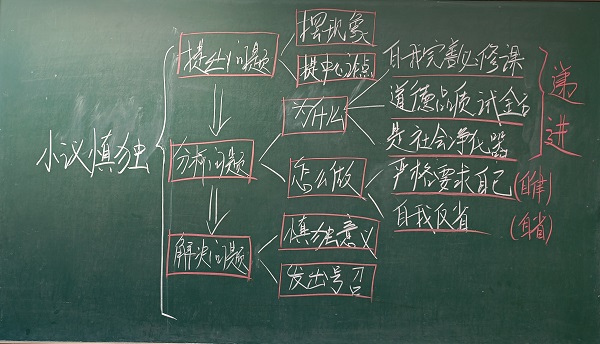 小议慎独
提出问题
摆现象
提中心论点
分析问题
为什么
自我完善必修课
道德品质试金石
是社会净化器
递进
怎么做
严格要求自己
(自律)
自我反省
(自省)
解决问题
慎独意义
发出号召